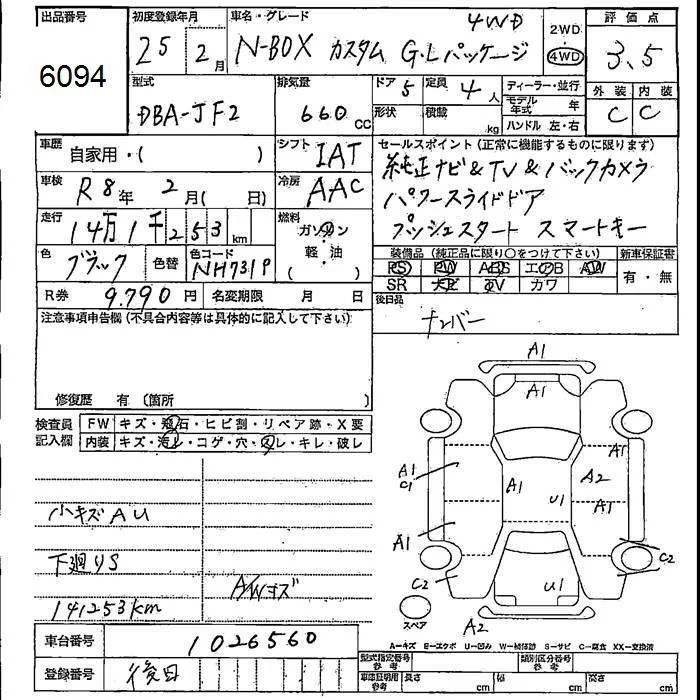 出品番号 初度登録年月 車名・グレード 4WD 2WD 評価点
6094 25年 2月 N-BOX カスタム G・Lパッケージ 4WD 3.5
型式 排気量 ドア 5 定員 4人 ディーラー・並行 外装 内装
DBA-JF2 660cc 形状 積載 kg モデル年式 年 C C
ハンドル 左・右
車歴 自家用・( ) シフト IAT セールスポイント (正常に機能するものに限ります)
車検 R8年 2月( 日) 冷房 AAC 純正ナビ&TV&バックカメラ
パワースライドドア
走行 14万1千253km 燃料 ガソリン プッシュスタート スマートキー
軽油
( )
色 ブラック 色替 色コード NH731P 装備品 (純正品に限り○をつけて下さい) 新車保証書
PS PW ABS エアB AW 有・無
SR ナビ TV カワ
R券 9,790円 名変期限 月 日 後日品
注意事項申告欄(不具合内容等は具体的に記入して下さい) ナンバー
修復歴 有 (箇所
検査員記入欄 FW キズ・飛石・ヒビ割・リペア跡・X要
内装 キズ・汚レ・コゲ・穴・スレ・キレ・破レ
A1
A1
A1
A1 C1 A1 U1 A2
A1
A1
C2 U1 C2
スペア A2
小キズAU
下廻りS
A/Wキズ
141253km
A=キズ E=エクボ U=凹み W=補修跡 S=サビ C=腐食 XX=交換済
車台番号 1026560 型式指定番号 参考 類別区分番号 参考
登録番号 後日 車庫証明用 参考 長さ cm 幅 cm 高さ cm